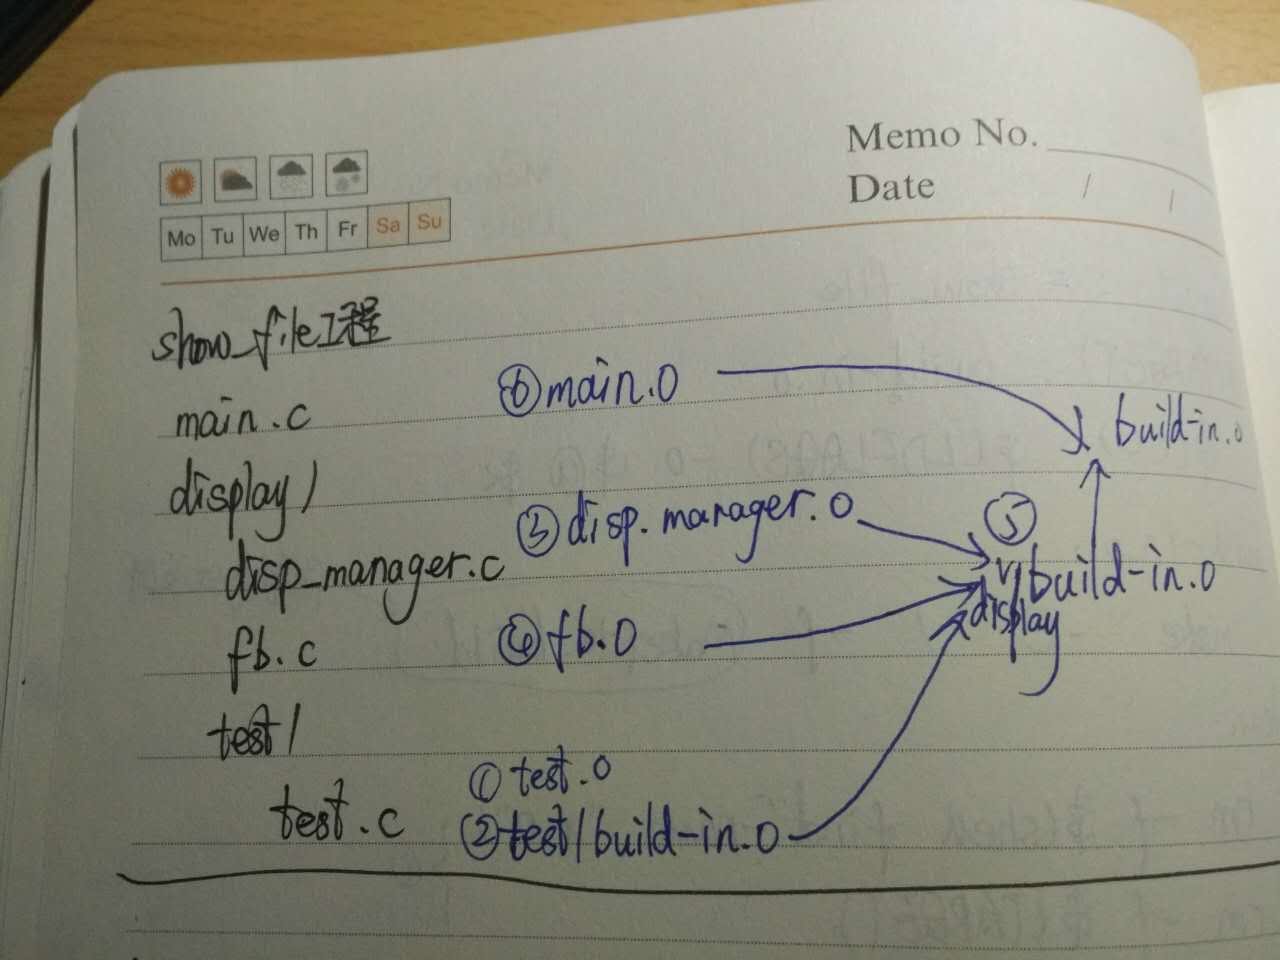 Memo No.
Date / /
Mo Tu We Th Fr Sa Su
show_file工程
main.c ⑥main.o build-in.o
display/
disp_manager.c ③disp.manager.o ⑤
display/build-in.o
fb.c ④fb.o
test/
test.c ①test.o
②test/build-in.o